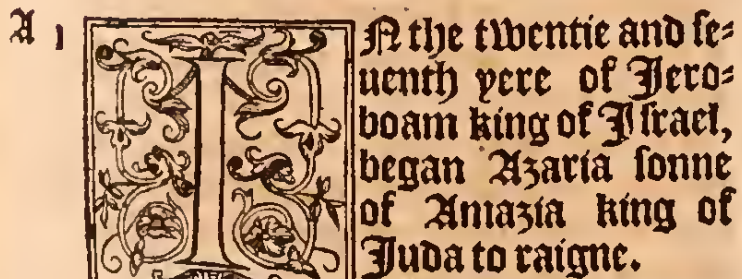 A 1 IN the twentie and ſe⸗
uenth yere of Jero⸗
boam king of Iſrael,
began Azaria ſonne
of Amazia king of
Juda to raigne.